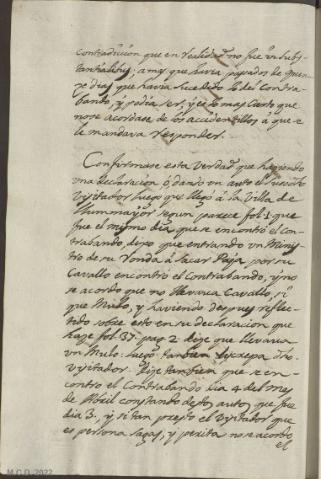 contradiccion que en realidad no fue en subs-
tantialibus; a mas que havia pasados de quin-
ze dias que havia sucedido lo del Contra-
bando, y podia ser, y es lo mas cierto que
no se acordase de los accidentillos à que se
le mandava responder.
Confirmase esta verdad que haziendo
una declaracion ò dando un auto el
Visitador luego que llego à la Villa de
segun parece fol. 1. que
fue el mismo dia que se encontrò el Con-
trabando, dixo que entrando un Minis-
tro de su Ronda à sacar Paja por su
Cavallo encontrò el Contrabando, y no
se acordo que no llevava Cavallo, si
que Mulo, y haviendo despues reflec-
tido sobre esto en su declaracion que
haze fol. 37. pag. 2. dize que llevava
un Mulo: luego tambien discrepa dho
Visitador. Dize tambien que se en-
contro el Contrabando dia 4 del mes
de Abril constando de los autos que fue
dia 3. y si tan presto el Visitador que
es persona sagaz, y perita no se acordo
el
M.C.D. 2022